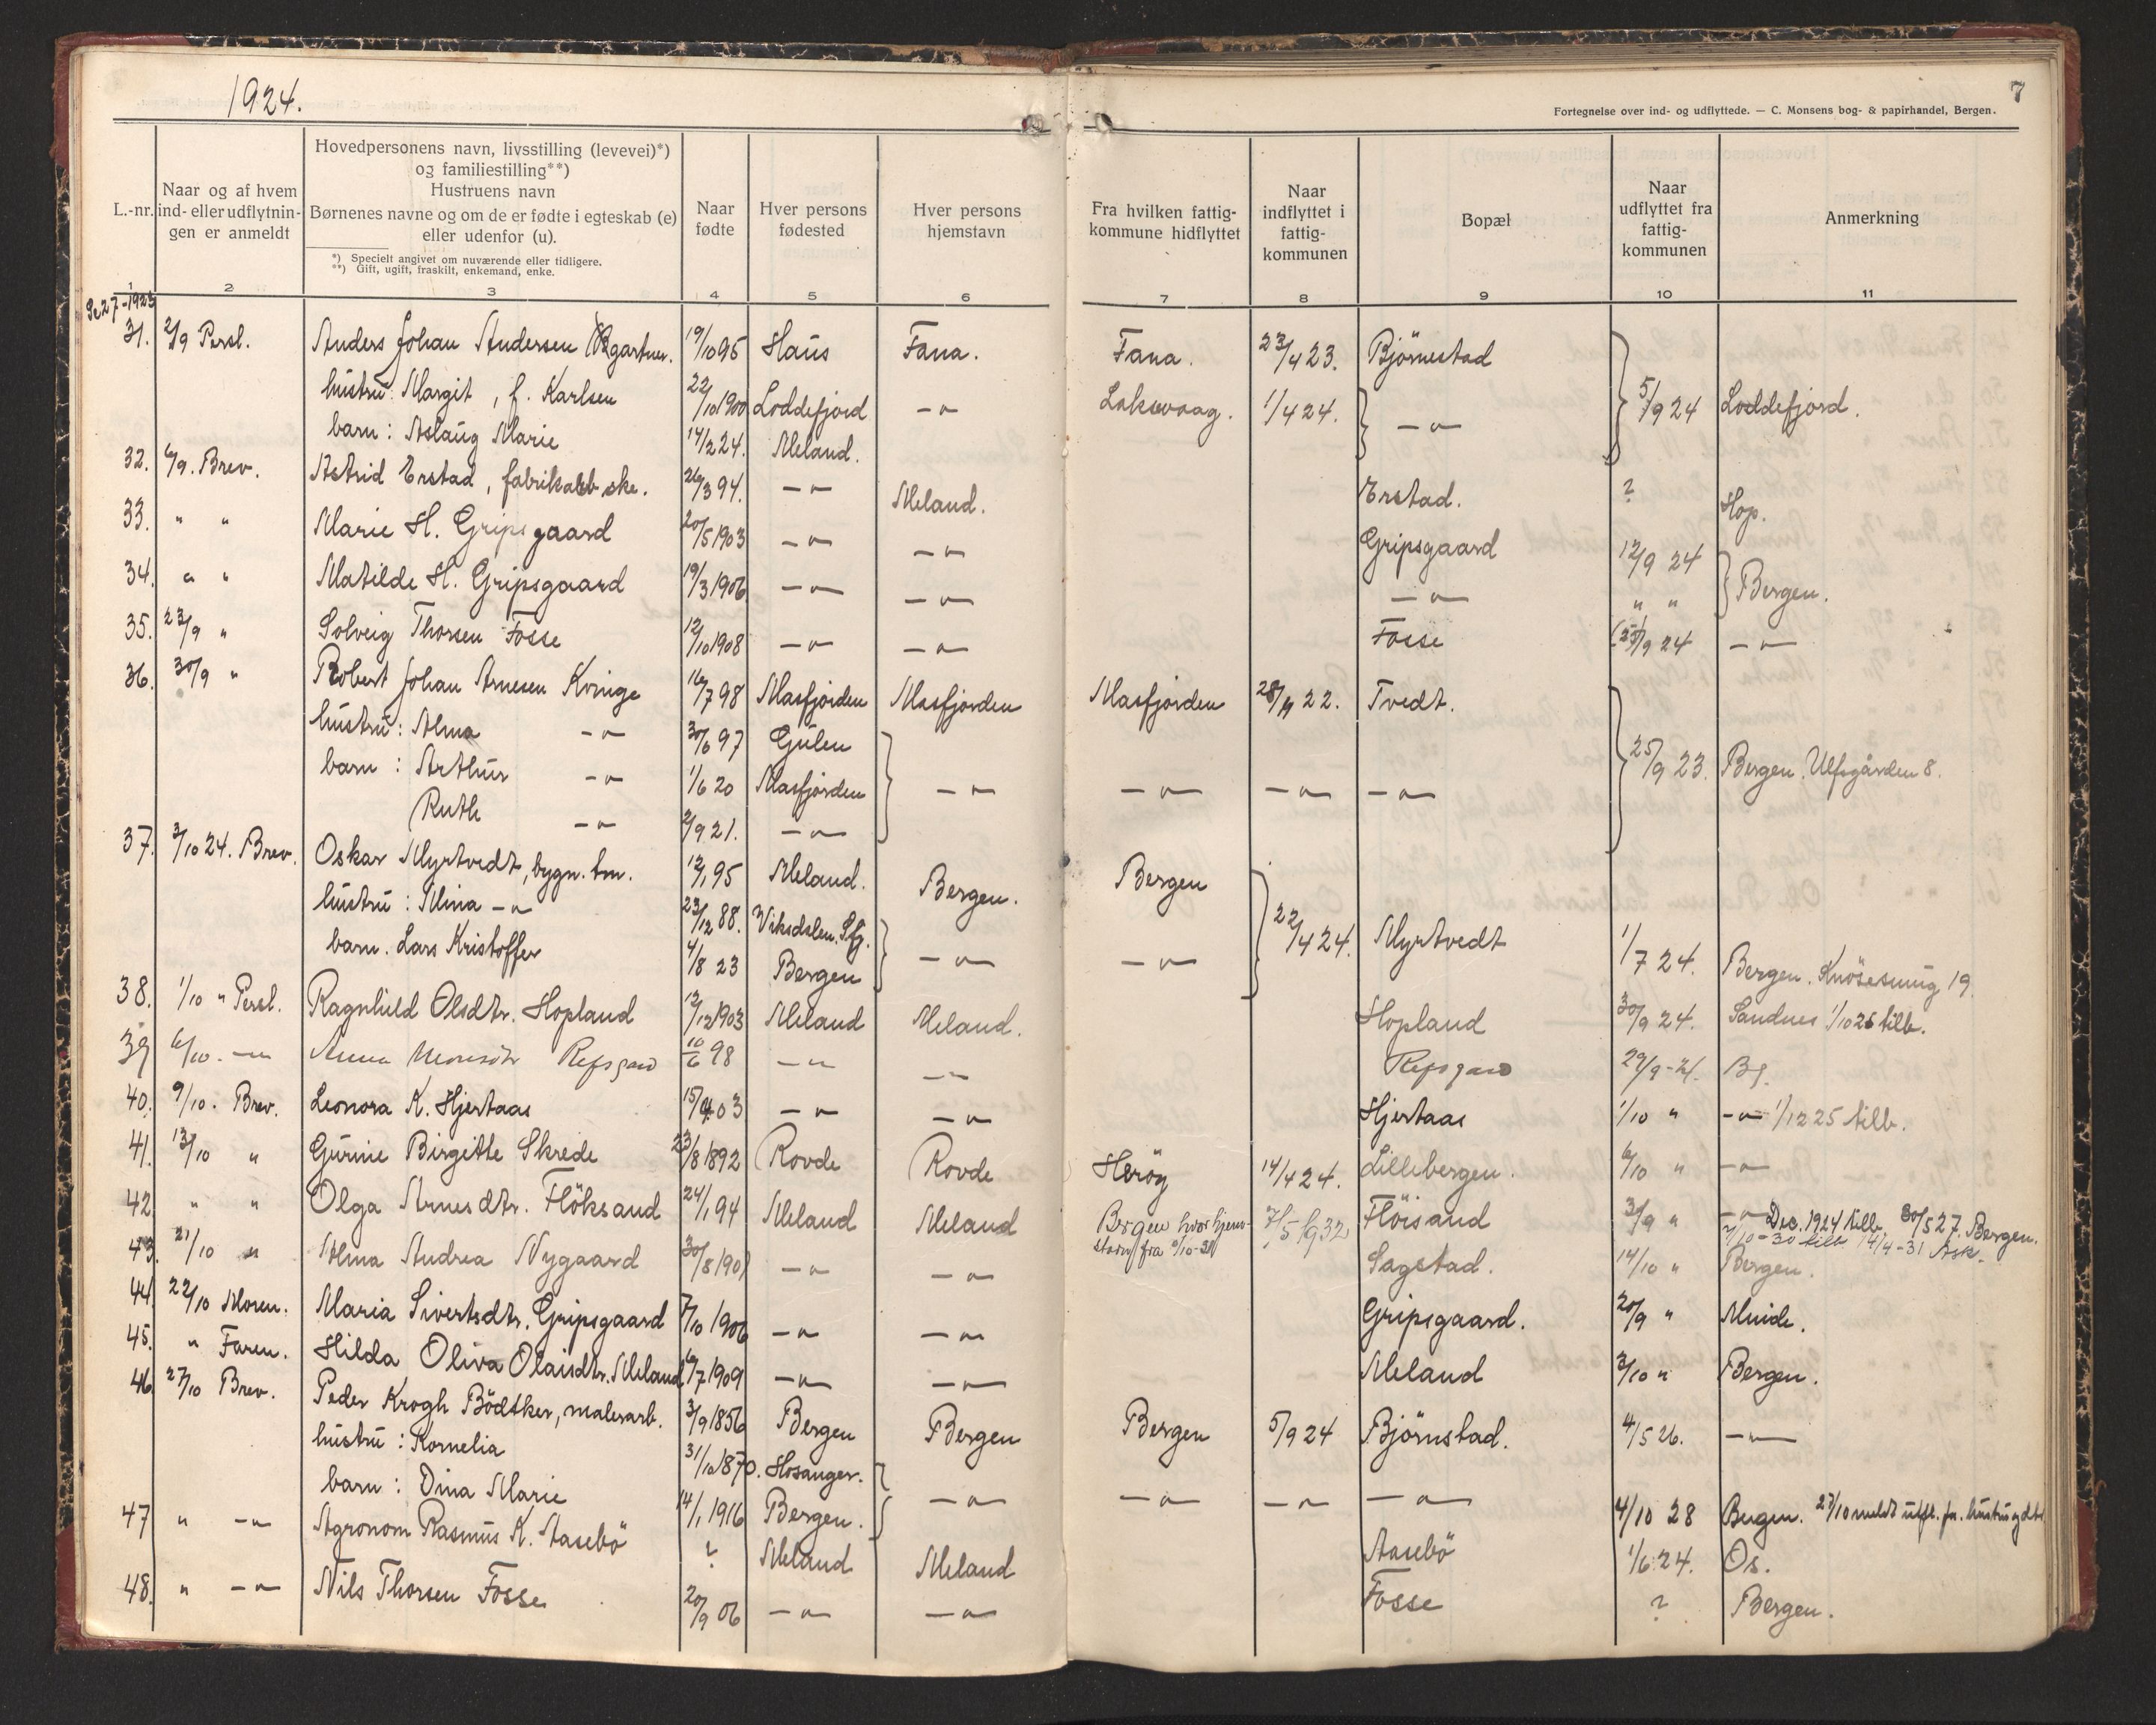 1924.
7
Fortegnelse over ind- og udflyttede. — C. Monsens bog- & papirhandel, Bergen.
L.-nr.
Naar og af hvem ind- eller udflytnin- gen er anmeldt
Hovedpersonens navn, livsstilling (levevei)*) og familiestilling**) Hustruens navn Børnenes navne og om de er fødte i egteskab (e) eller udenfor (u).
*) Specielt angivet om nuværende eller tidligere.
**) Gift, ugift, fraskilt, enkemand, enke.
Naar fødte
Hver persons fødested
Hver persons hjemstavn
Fra hvilken fattig- kommune hidflyttet
Naar indflyttet i fattig- kommunen
Bopæl
Naar udflyttet fra fattig- kommunen
Anmerkning
1 2 3 4 5 6 7 8 9 10 11
Se 27-1923
31. 2/9 Persl. Anders Johan Andersen gartner. 19/10 95 Haus Fana. Fana. 23/4 23. Björnestad
hustru: Margit, f. Karlsen 22/10 1900 Loddefjord -"- Laksevaag. 1/4 24. -"- 5/9 24 Loddefjord.
barn: Aslaug Marie 14/2 24. Meland.
32. 6/9. Brev. Astrid Erstad, fabrikarb.ske. 26/3 94. -"- Meland. Erstad. ? Hop.
33. " " Marie H. Gripsgaard 20/5 1903 -"- -"- Gripsgaard 12/9 24
34. " " Matilde H. Gripsgaard 19/3 1906 -"- -"- -"- " " Bergen.
35. 23/9 " Solveig Thorsen Fosse 12/10 1908 -"- -"- Fosse 25/9 24 -"-
36. 30/9 " Robert Johan Arnesen Kvinge 16/7 98 Masfjorden Masfjorden Masfjorden 28/4 22. Tvedt.
hustru: Alma -"- 30/6 97 Gulen
barn: Arthur -"- 1/6 20 Masfjorden -"- -"- -"- -"- 25/9 23. Bergen. Ulfsgården 8.
Ruth -"- 2/9 21. -"-
37. 3/10 24. Brev. Oskar Myrtvedt, bygn. tm. 12/1 95 Meland. Bergen. Bergen
hustru: Mina -"- 23/12 88. Viksdalen. Sfj.
barn. Lars Kristoffer 4/8 23 Bergen -"- -"- 22/4 24. Myrtvedt 1/7 24. Bergen. Knösesmug 19.
38. 1/10 " Persl. Ragnhild Olsdtr. Hopland 12/12 1903 Meland Meland. Hopland 30/9 24. Sandnes 1/10 25 tilb.
39 6/10. -"- Anna Monsdtr Refsgard 10/6 98 -"- -"- Refsgard 29/9-24. Bg.
40. 9/10. Brev. Leonora K. Hjertaas 15/4 03 -"- -"- Hjertaas 1/10 " -"- 1/12 25 tilb.
41. 13/10 " Gurine Birgitte Skrede 23/8 1892 Rovde Rovde Heröy 14/4 24. Lillebergen. 6/10 " -"-
42 " " Olga Arnesdtr. Flöksand 24/1 94 Meland Meland Bergen hvor hjem- stavn fra 9/10-31 7/5 1932 Flöisand 3/9 " -"- Dec. 1924 tilb. 30/5 27. Bergen.
7/10-30 tilb. 14/4-31 Ask.
43. 21/10 " Alma Andrea Nygaard 30/8 1901 -"- -"- Sagstad. 14/10 " Bergen.
44. 22/10 Moren. Maria Sivertsdtr. Gripsgaard 7/10 1906 -"- -"- Gripsgaard. 20/9 " Muide.
45. " Faren. Hilda Oliva Olaisdtr. Meland 6/7 1909 -"- -"- Meland 3/10 " Bergen.
46 27/10 Brev. Peder Krogh Bödtker, malerarb. 3/9 1856 Bergen Bergen Bergen 5/9 24 Björnstad. 4/5 26. -"-
hustru: Kornelia 31/10 1870. Hosanger.
barn: Dina Marie 14/1 1916 Bergen. -"- -"- -"- -"- 4/10 28 Bergen. 27/10 meldt utfl. for hustru og dtr.
47 " -"- Agronom Rasmus K. Aasebö ? Meland Meland Aasebö 1/6 24. Os.
48. " -"- Nils Thorsen Fosse 20/9 06 -"- -"- Fosse ? Bergen.